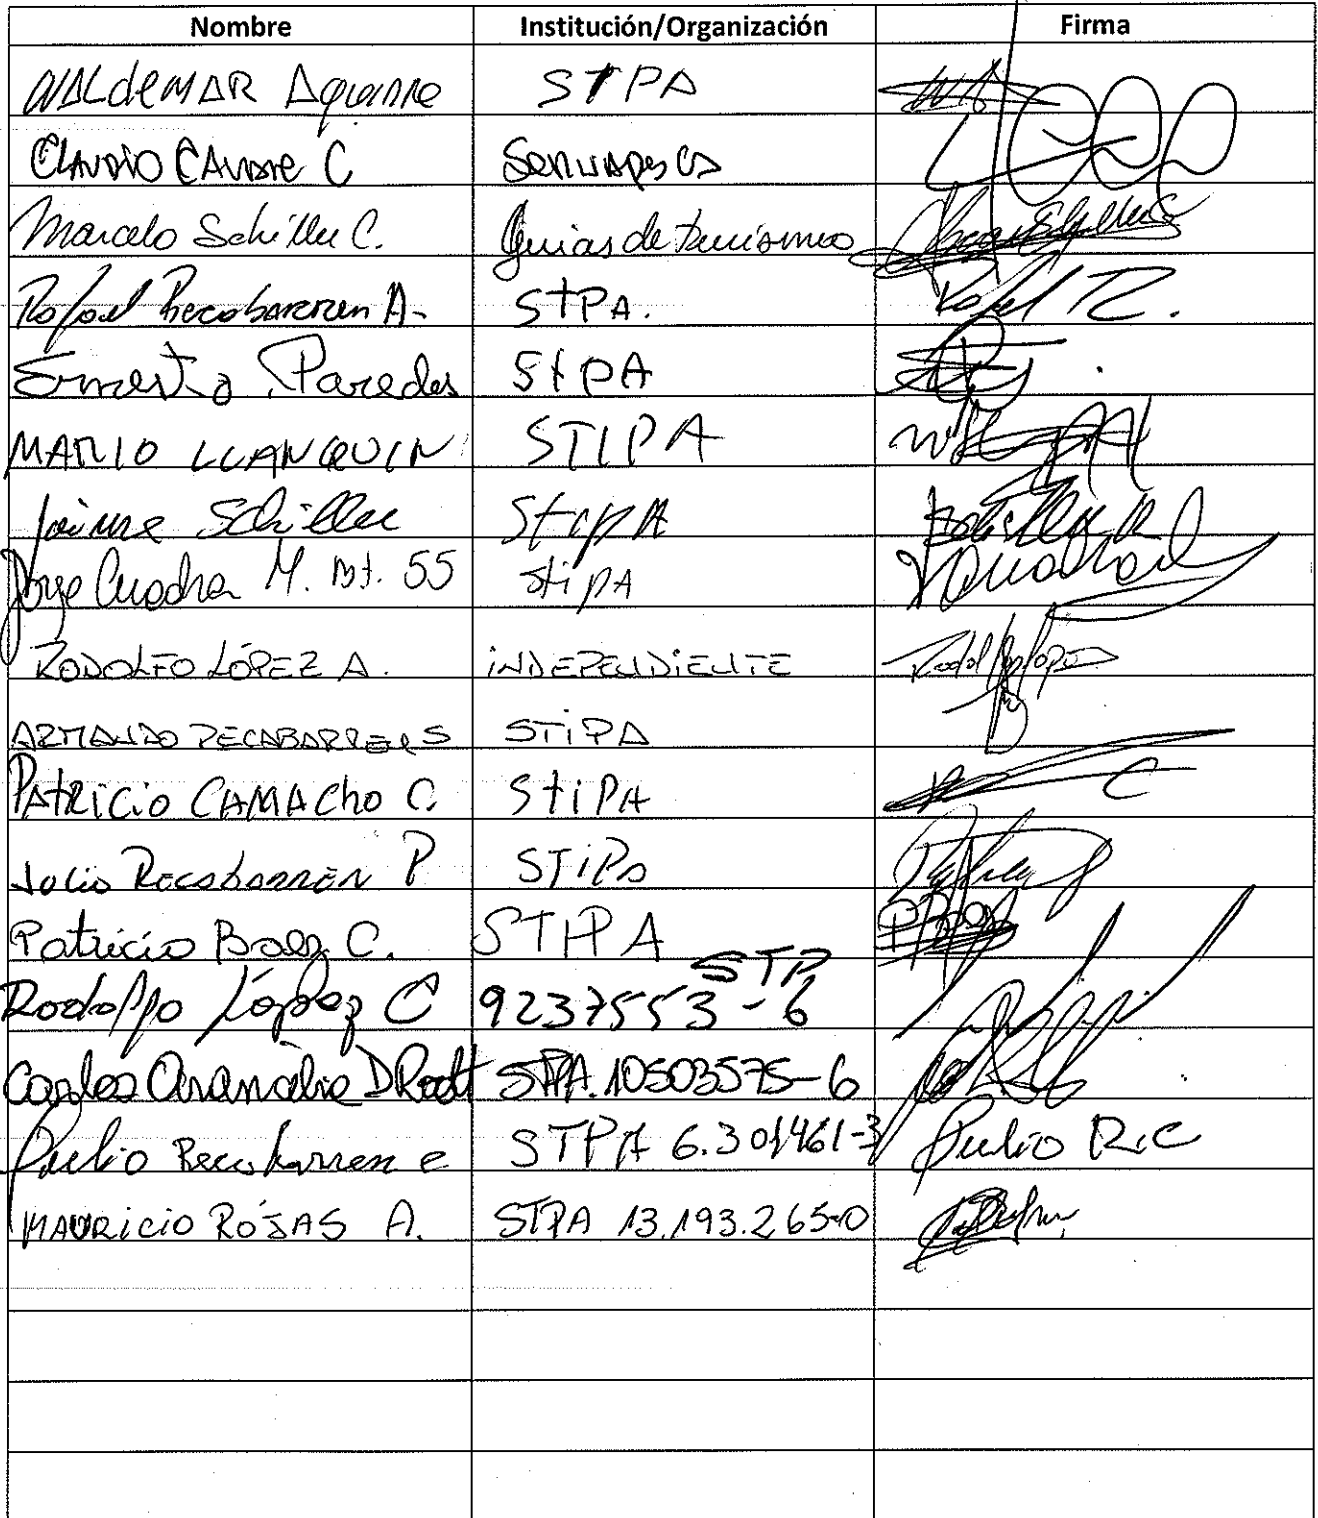 Nombre Institución/Organización Firma
WALdeMAR Aguirre STPA
CLAUDIO C
Marcelo Schiller C. Guias de turismo
Rafael Recabarren A. STPA. Rafael R.
Ernesto Paredes StPA
MARIO LLANQUIN STIPA
Jaime Schiller StipA
Jorge Cuadra M. Bt. 55 StipA
RODOLFO LÓPEZ A. iNDEPENDiENTE Rodolfo Lopez
ARMANDO RECABARRENS STiPA
PAtRiCiO CAMACho C. StiPA
Julio Recabarren P STiPA
Patricio Baez C. STIPA
Rodolfo López C STP 9237553-6
Carlos D STPA. 10503575-6
Julio Recabarren c STPA 6.301461-3 Julio R.C
MAURiCiO ROJAS A. STPA 13.193.265-0